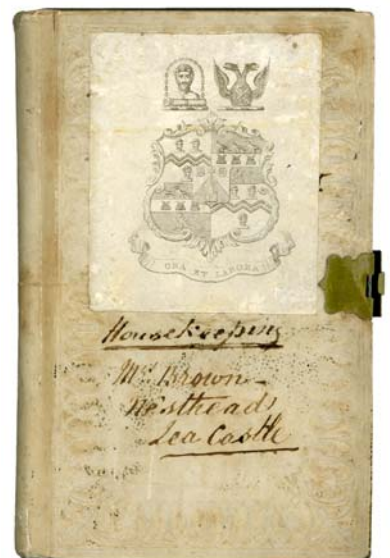 ORA ET LABORA
Housekeeping
Mrs Brown
Westhead's
Lea Castle